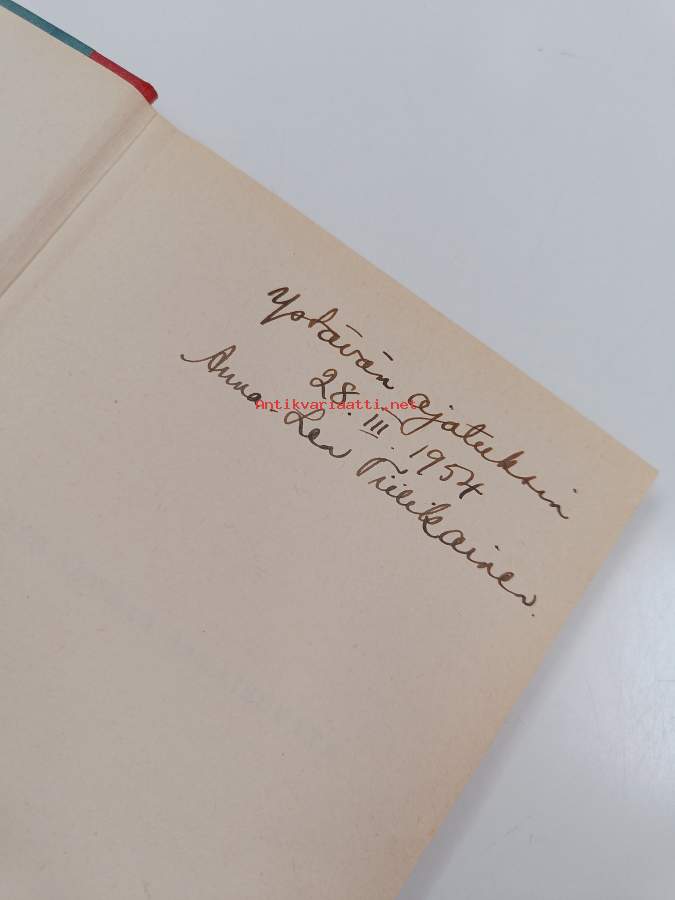 Ystävän ajatuksin
28. III. 1954
Anna-Lea Tiilikainen.
Antikvariaatti.net